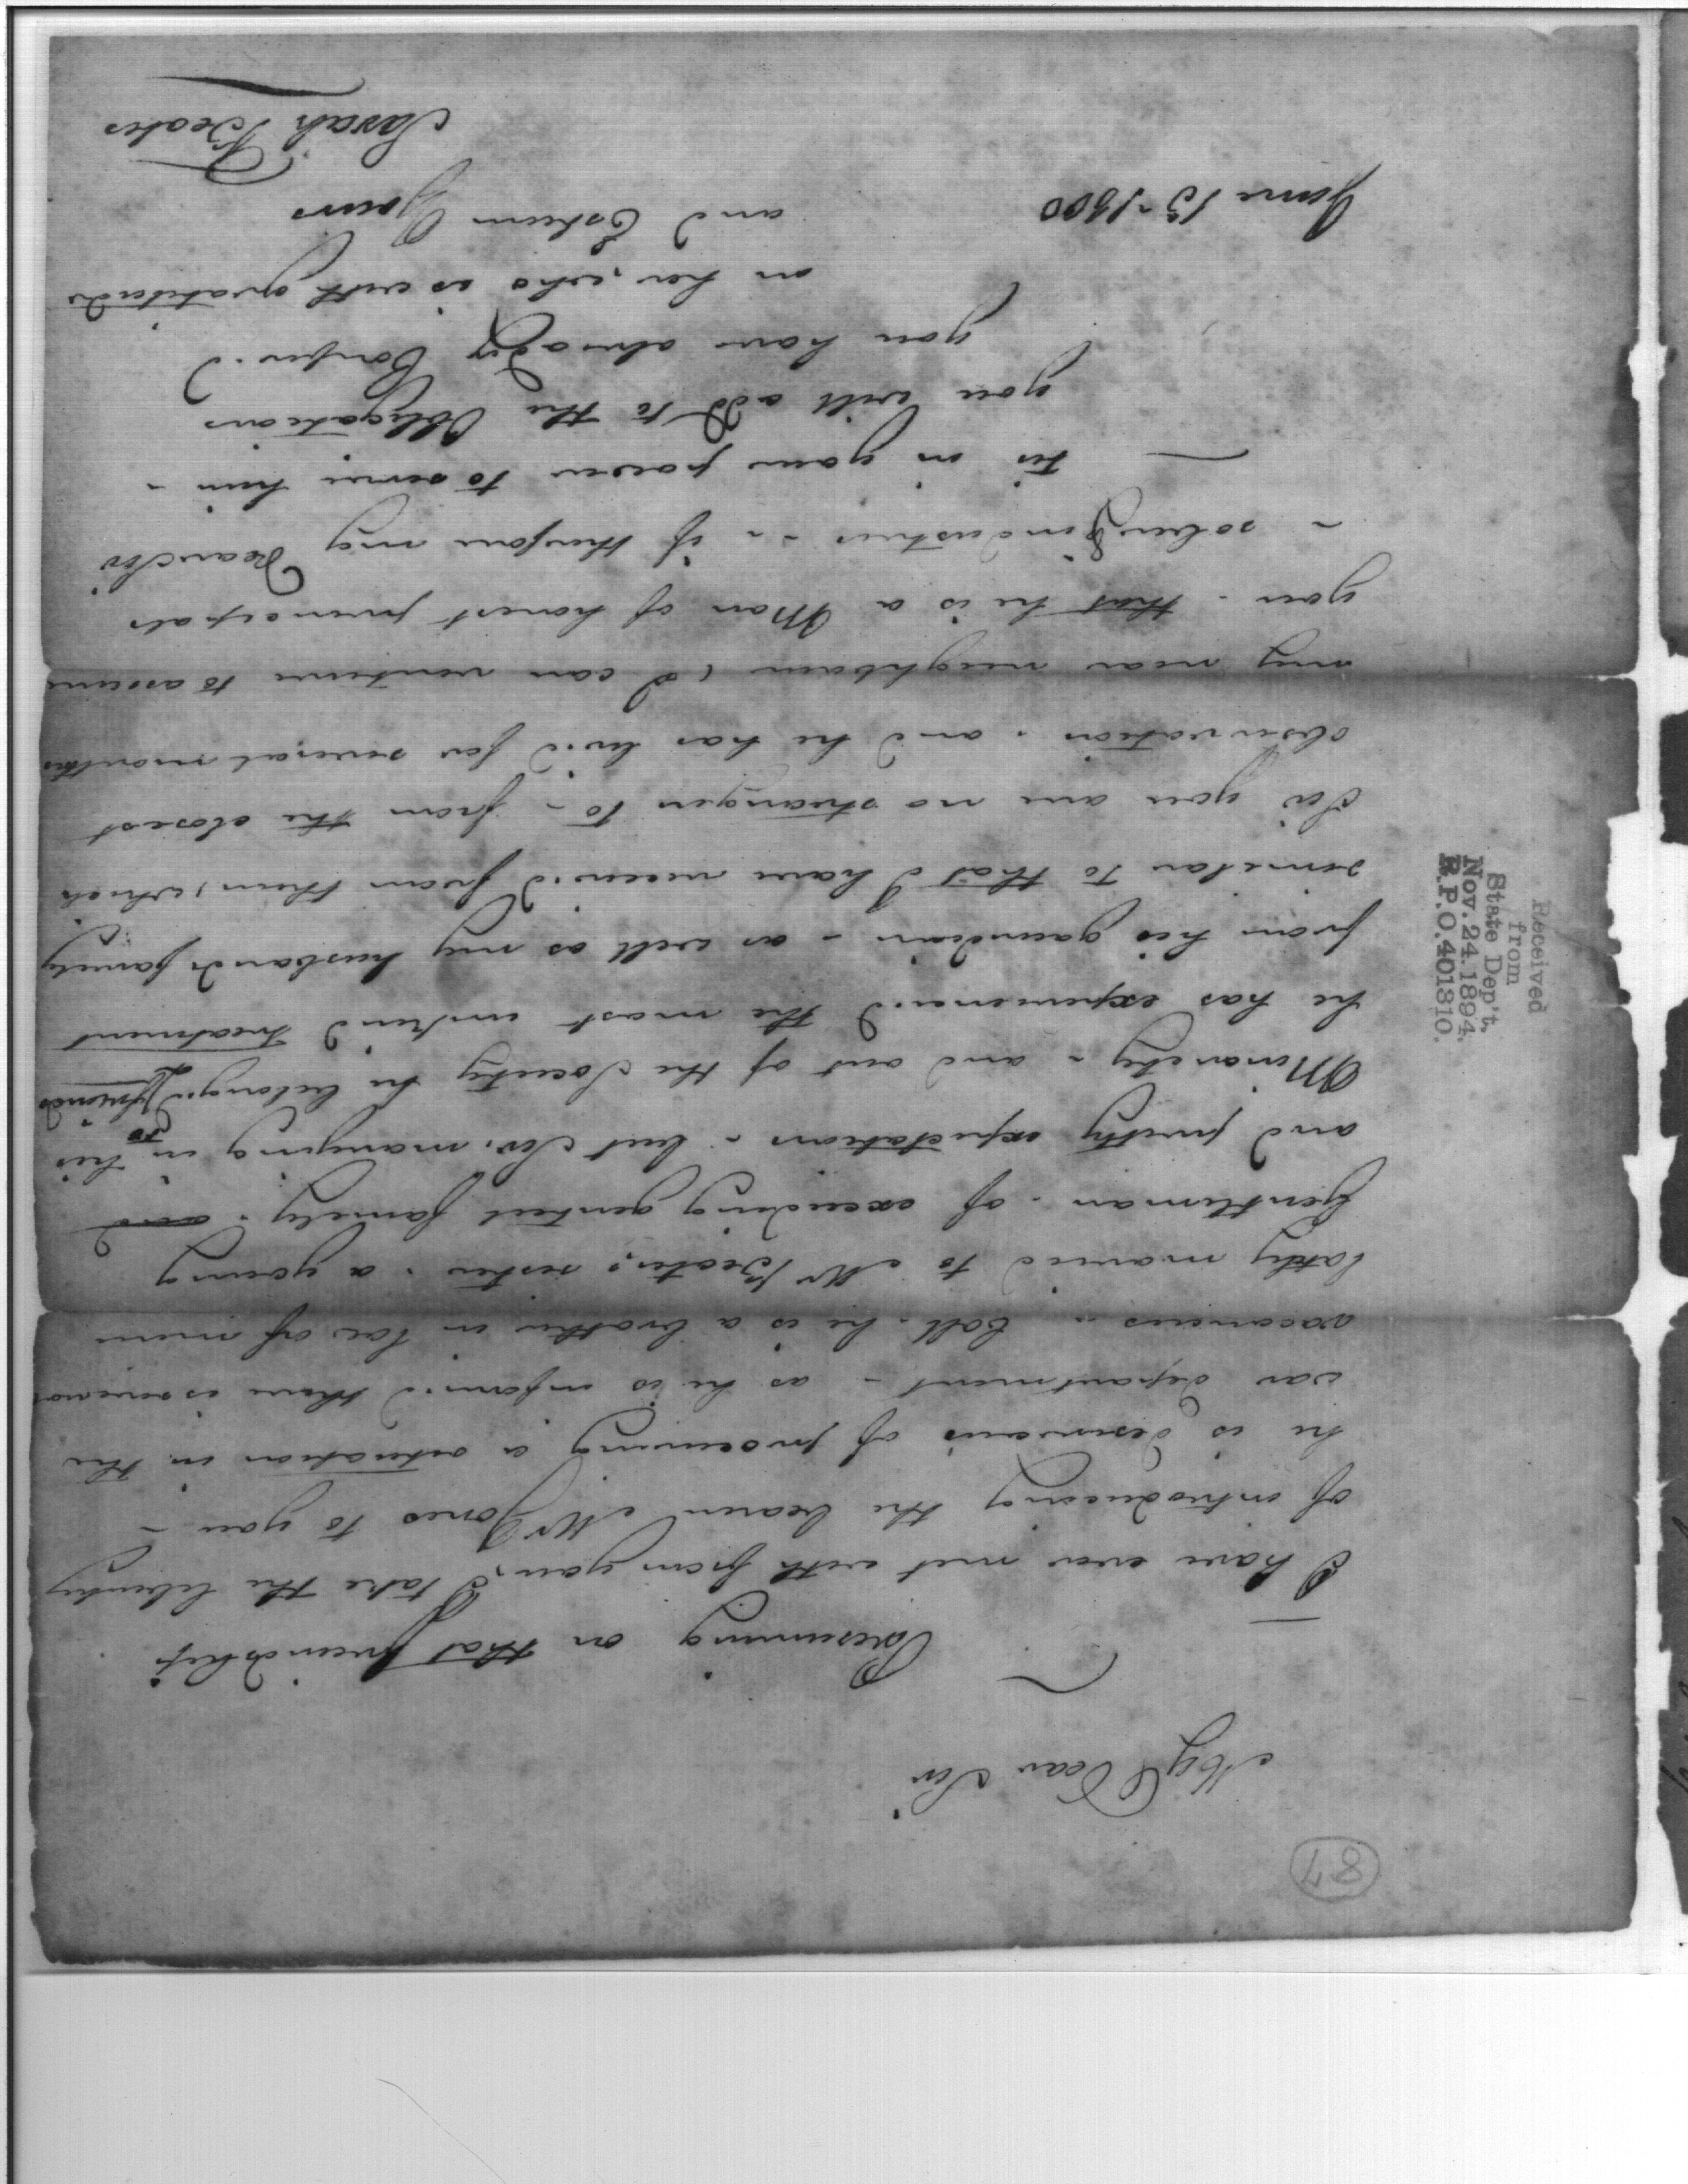 87
My Dear Sir
Presuming on that friendship
I have ever met with from you, I take the liberty
of introducing the bearer Mr Jones to you -
he is desireous of procuring a situation in the
war department - as he is inform.d there is several
vacancies - he is a brother in law of mine
lately married to Mr Beates sister. a young
Gentleman - of exceeding genteel family.
and pretty expectations - but Sir. marrying in his
Minority - and out of the Society he belong.d to friends
he has experienced the most unkind treatment
from his guardian - as well as my husbands family
similar to that I have receiv.d from them, which
Sir you are no stranger to - from the closest
observation. and he has liv.d for several months
my near neighbour (I can venture to assure
you - that he is a Man of honest principals
- sober & industrius - - if therefore my Dear Sir
tis in your power to serve him -
you will add to the Obligations
you have already Confer.d
on her, who is with gratitude
and Esteem Yours
Sarah Beates
June 13 - 1800
Received
from
State Dep't.
Nov. 24. 1894.
R.P.O. 401310.